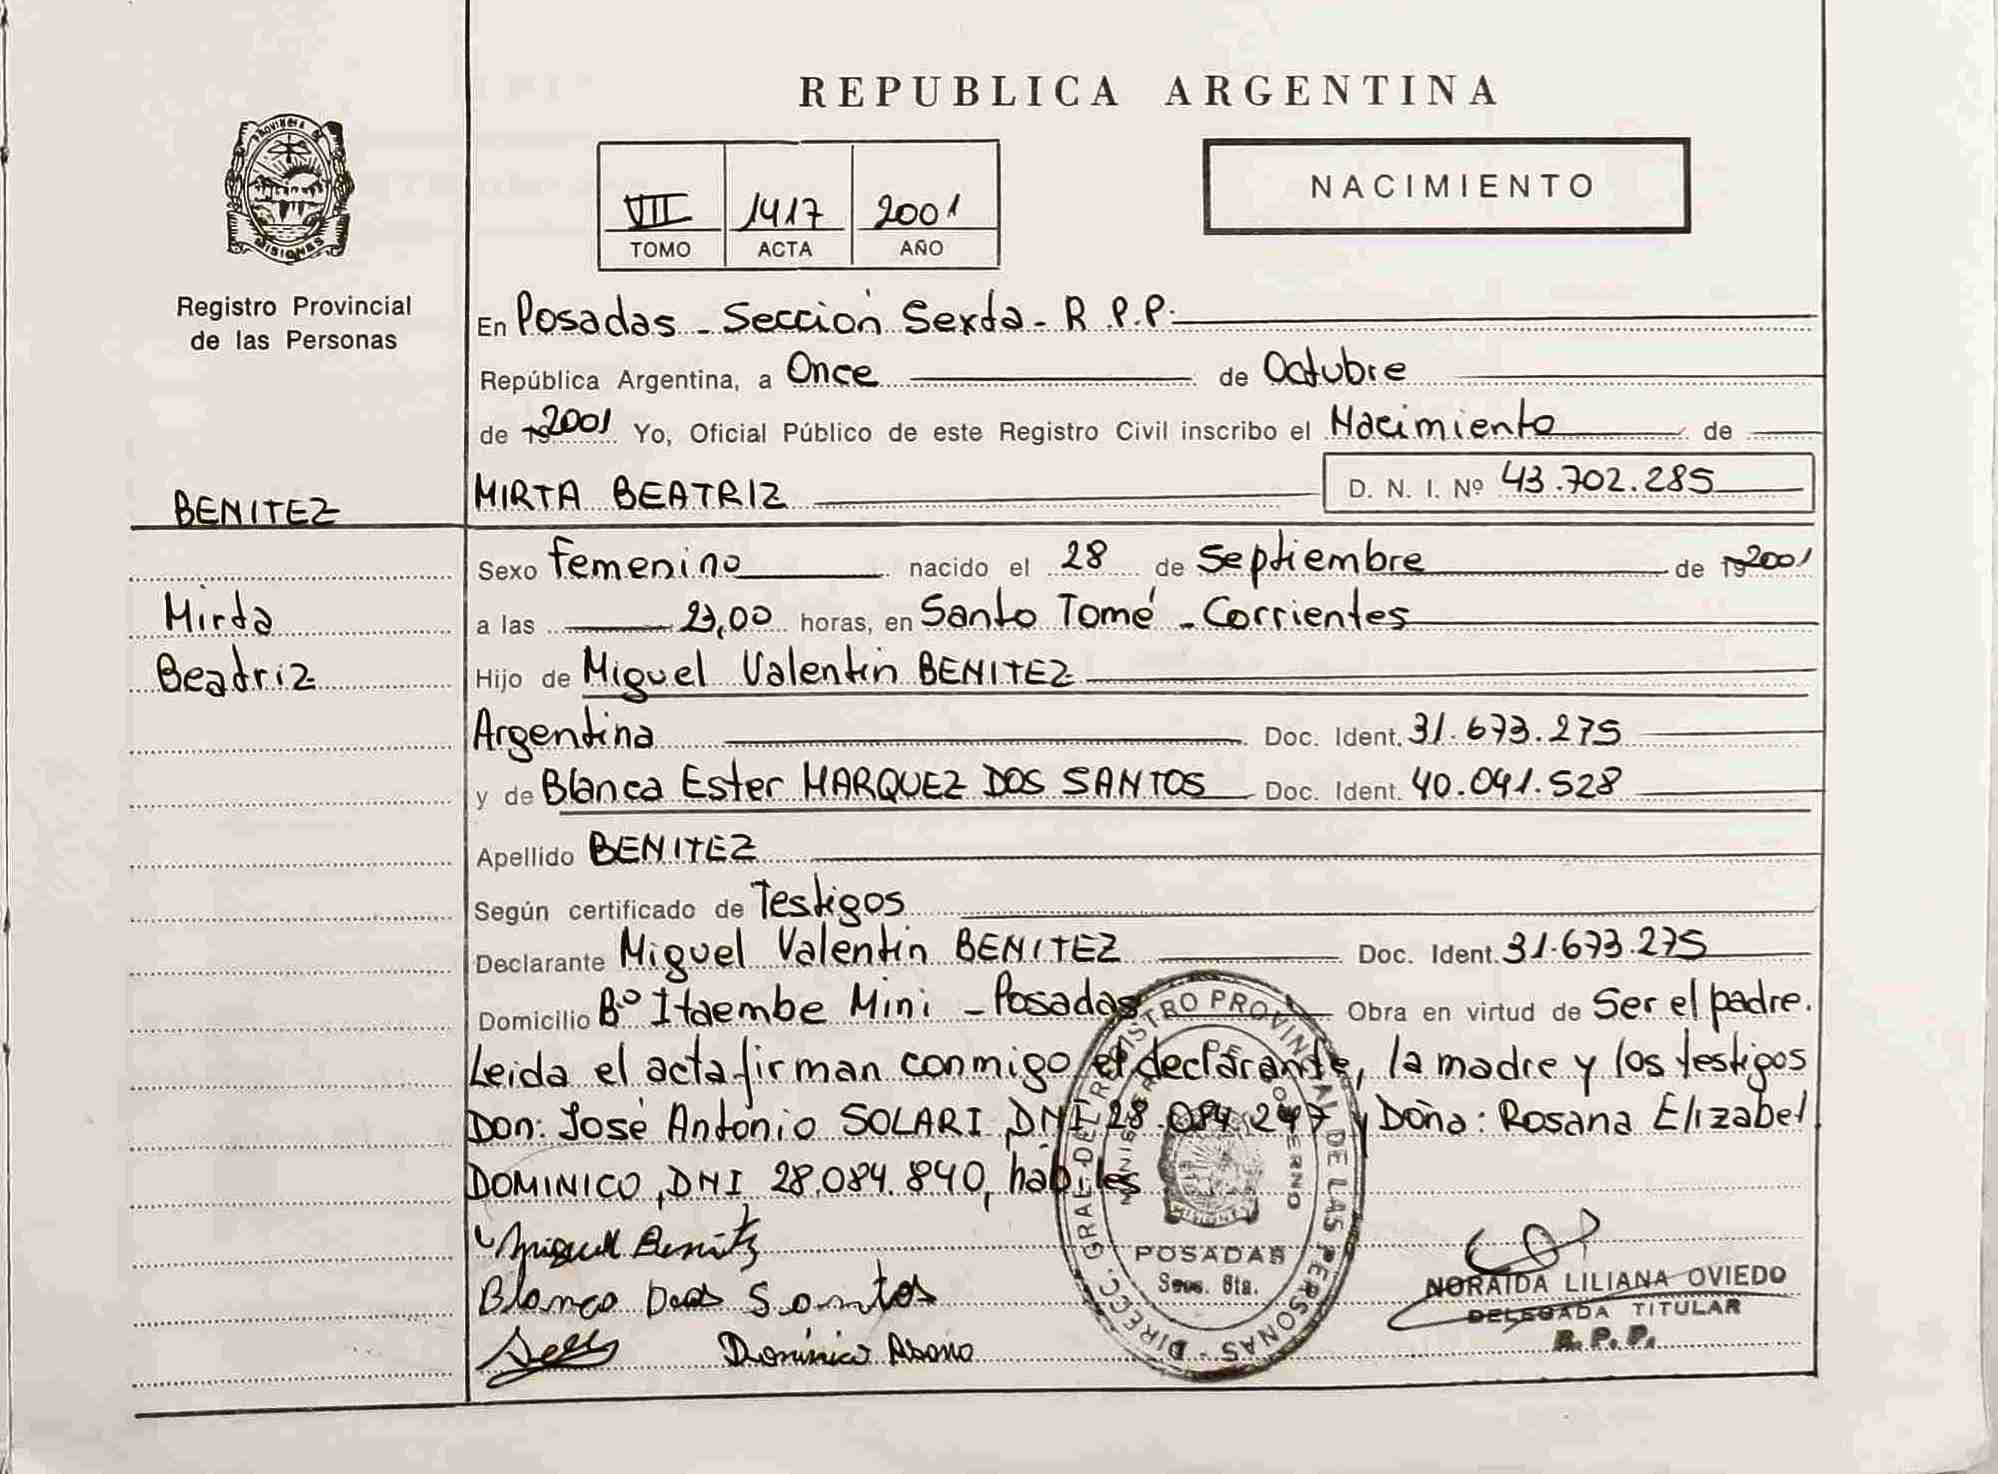 REPUBLICA ARGENTINA
PROVINCIA DE
MISIONES
Registro Provincial
de las Personas
VII 1417 2001
TOMO ACTA AÑO
NACIMIENTO
En Posadas - Sección Sexta - R.P.P.
República Argentina, a Once de Octubre
de 19 2001 Yo, Oficial Público de este Registro Civil inscribo el Nacimiento de
MIRTA BEATRIZ D. N. I. Nº 43.702.285
BENITEZ
Mirta
Beatriz
Sexo femenino nacido el 28 de Septiembre de 19 2001
a las 23,00 horas, en Santo Tomé - Corrientes
Hijo de Miguel Valentin BENITEZ
Argentina Doc. Ident. 31.673.275
y de Blanca Ester MARQUEZ DOS SANTOS Doc. Ident. 40.041.528
Apellido BENITEZ
Según certificado de Testigos
Declarante Miguel Valentin BENITEZ Doc. Ident. 31.673.275
Domicilio Bº Itaembe Mini - Posadas Obra en virtud de Ser el padre.
Leida el acta firman conmigo el declarante, la madre y los testigos
Don: José Antonio SOLARI, DNI 28.084.247 y Doña: Rosana Elizabel
DOMINICO, DNI 28.084.840, hábiles
Miguel Benitz
Blanca Dos Santos
Dominico
DIRECC. GRAL DEL REGISTRO PROVINCIAL DE LAS PERSONAS
MINISTERIO DE GOBIERNO
MISIONES
POSADAS
Secc. 6ta.
NORAIDA LILIANA OVIEDO
DELEGADA TITULAR
R. P. P.